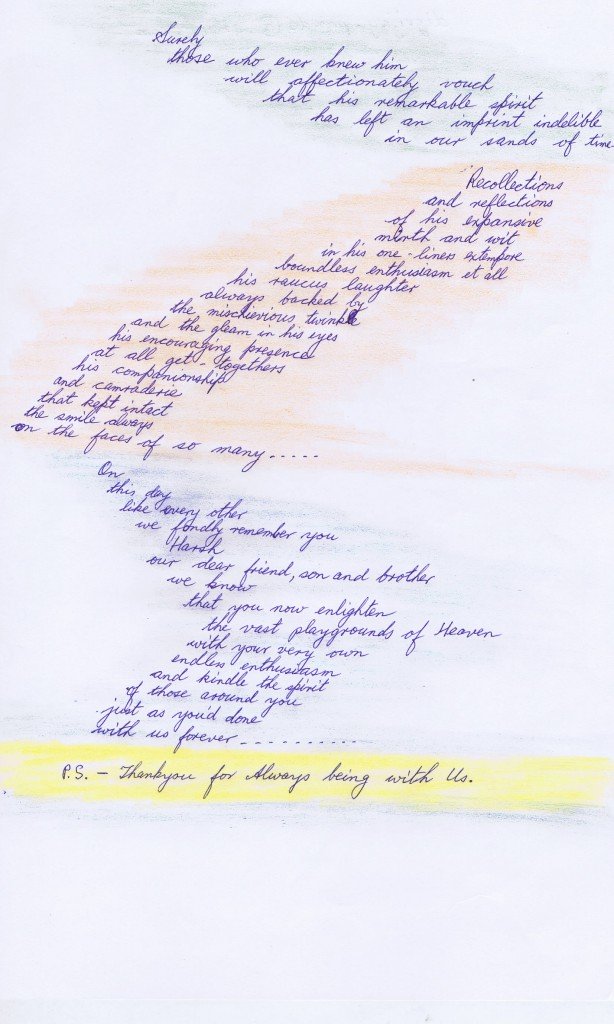 Surely
those who ever knew him
will affectionately vouch
that his remarkable spirit
has left an imprint indelible
in our sands of time
Recollections
and reflections
of his expansive
mirth and wit
in his one-liners extempore
boundless enthusiasm et all
his raucus laughter
always backed by
the mischievious twinkle
and the gleam in his eyes
his encouraging presence
at all get-togethers
his companionship
and camraderie
that kept intact
the smile always
on the faces of so many.....
On
this day
like every other
we fondly remember you
Harsh
our dear friend, son and brother
we know
that you now enlighten
the vast playgrounds of Heaven
with your very own
endless enthusiasm
and kindle the spirit
of those around you
just as you'd done
with us forever.............
P.S. – Thankyou for Always being with Us.